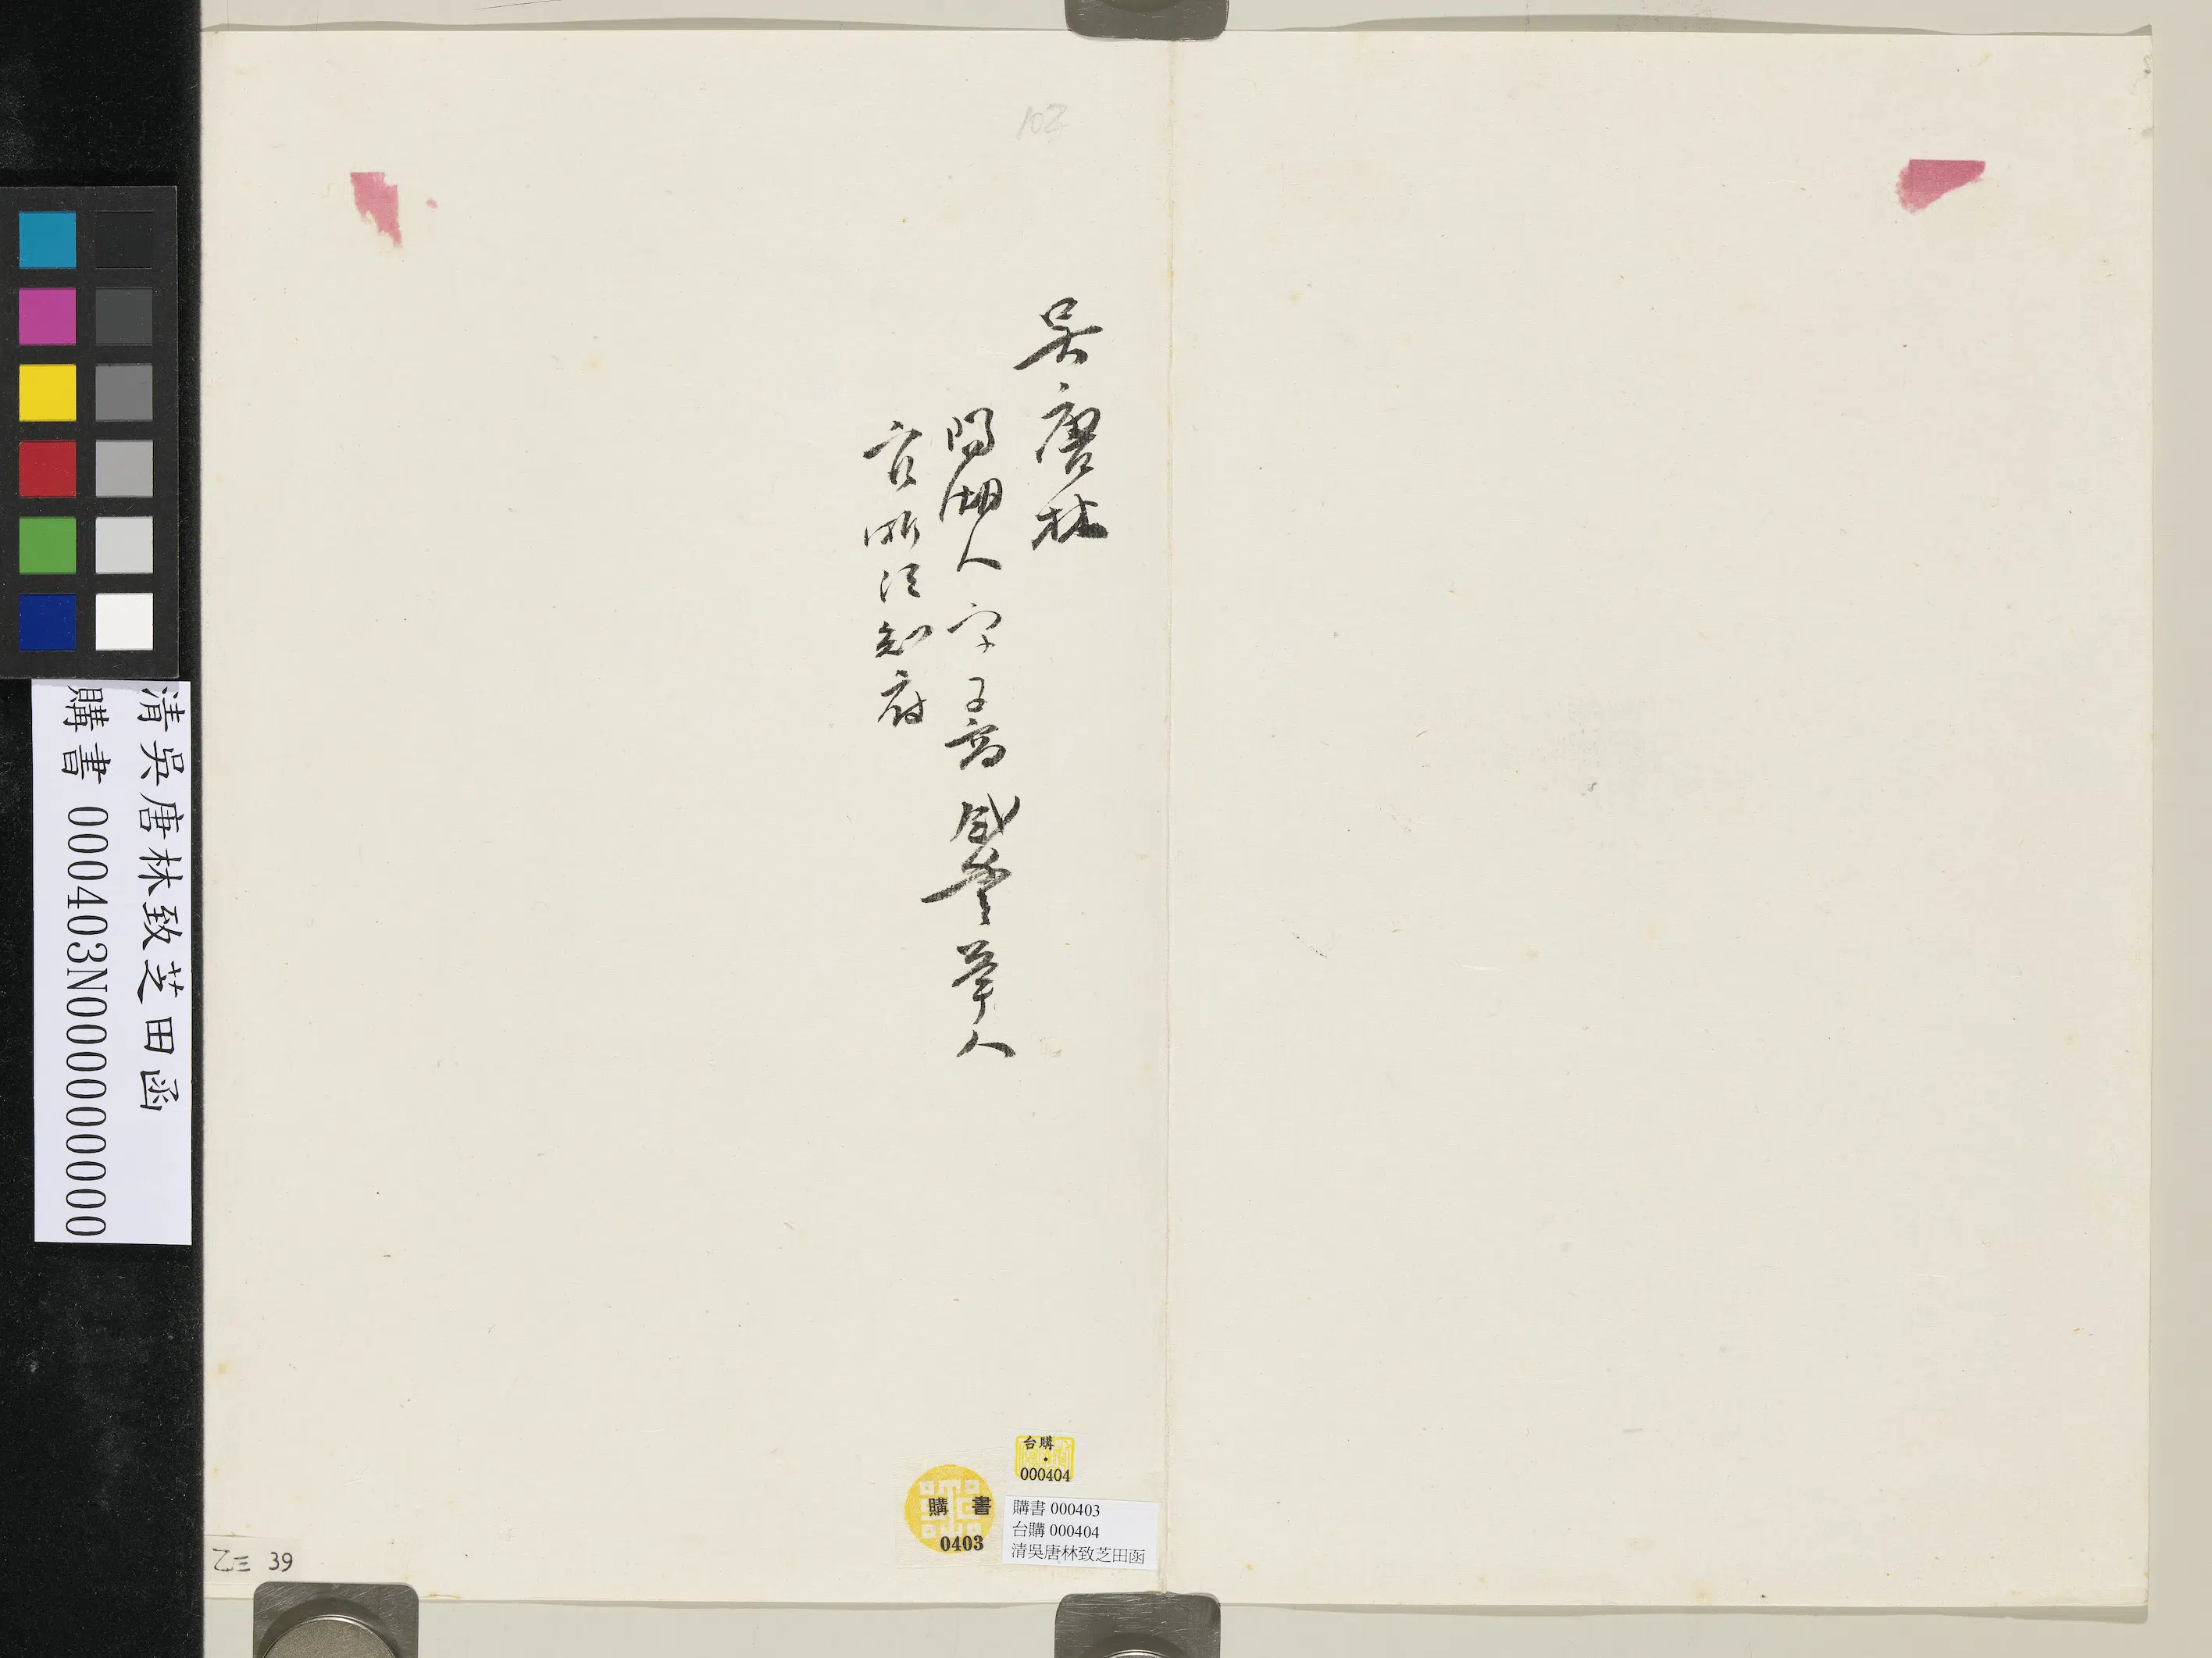 102
吳唐林
陽湖人字子高咸豐舉人
官浙江知府
台購
000404
購書
0403
購書 000403
台購 000404
清吳唐林致芝田函
清吳唐林致芝田函
購書 000403N000000000
乙三 39